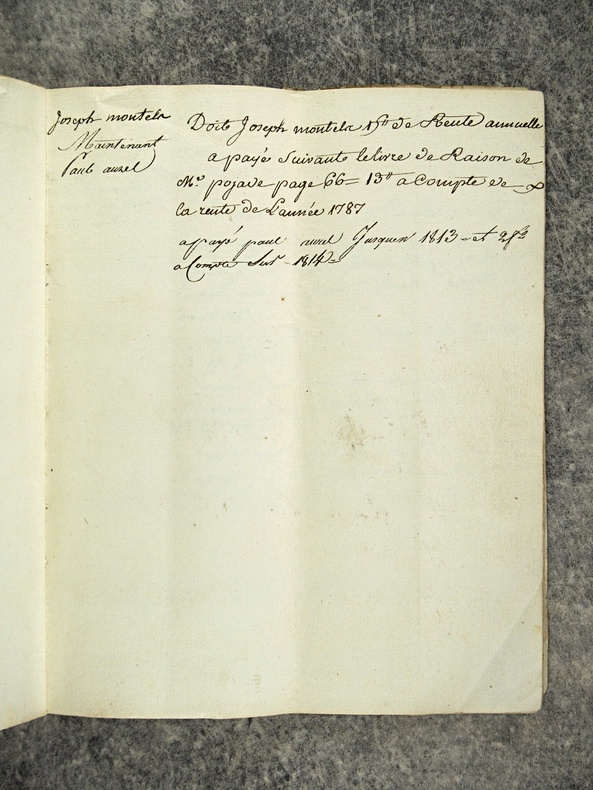 Joseph montela
Maintenant
Paul aurel
Doit Joseph montela 15ᵗᵗ de Rente annuelle
a payé Suivant le livre de Raison de
Mr pojade page 66 = 13ᵗᵗ a Compte de
la rente de L'année 1787
a payé paul aurel Jusquen 1813 - et
a Compte Sur 1814 -